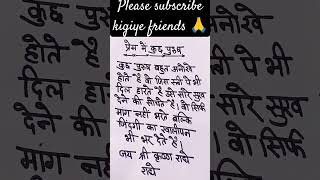 Please subscribe
kigiye friends 🙏
प्रेम में कुछ पुरुष
कुछ पुरुष बहुत अनोखे
होते है वो जिस स्त्री पे भी
दिल हारते है उसे सारे सुख
देने की सोचते है। वो सिर्फ
मांग नहीं भरते बल्कि
जिंदगी का खालीपन
भी भर देते है।
जय श्री कृष्णा राधे
राधे